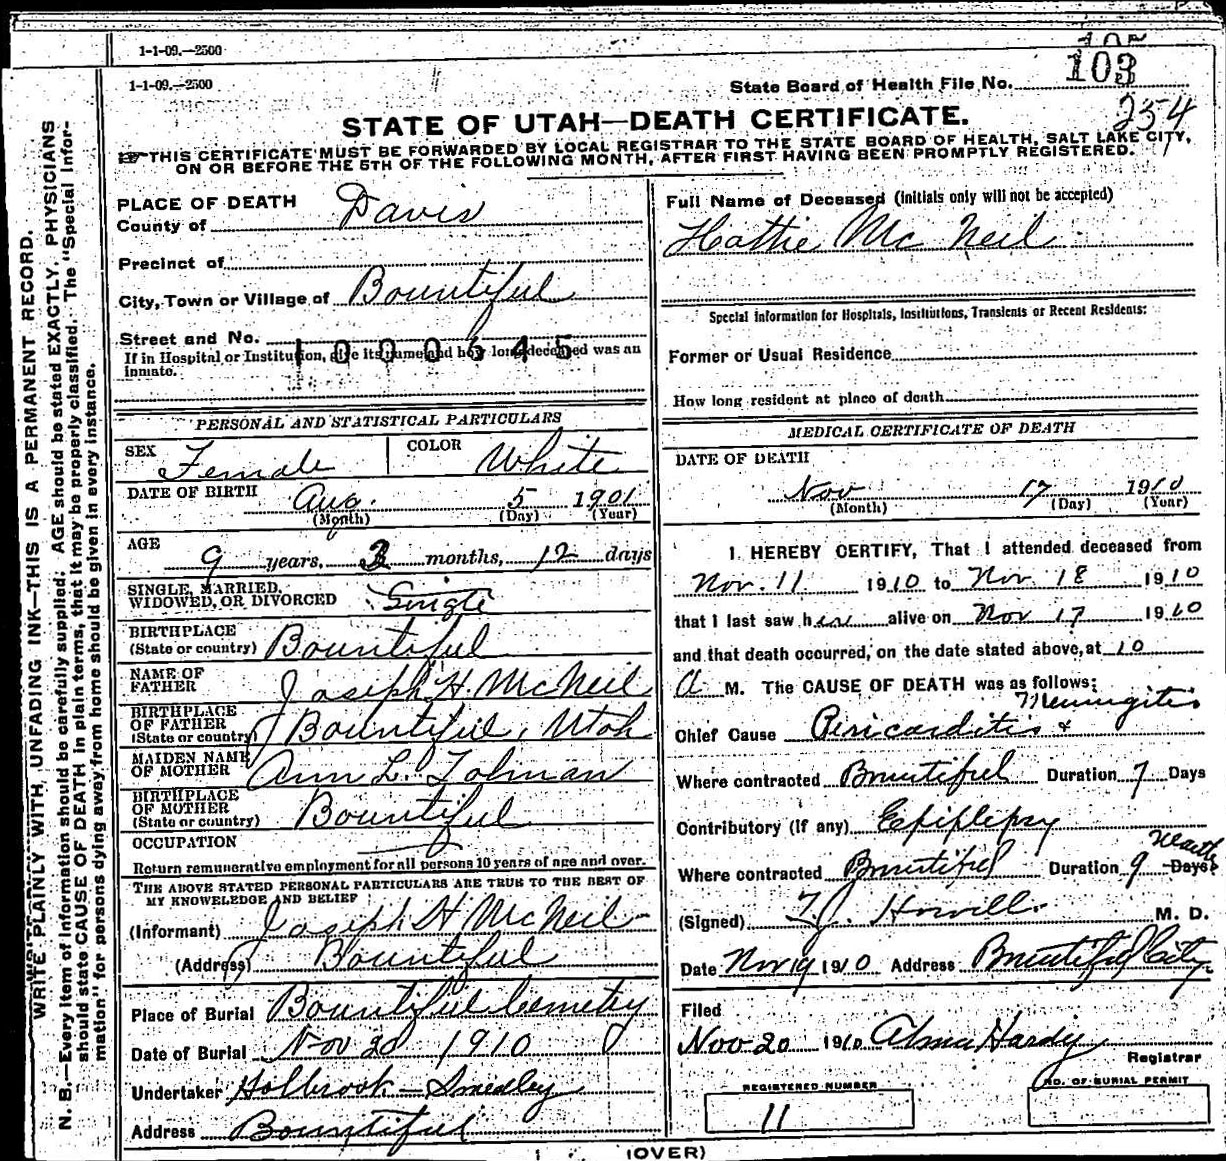 1-1-09.—2500
1-1-09.—2500
103
State Board of Health File No.
254
STATE OF UTAH—DEATH CERTIFICATE.
THIS CERTIFICATE MUST BE FORWARDED BY LOCAL REGISTRAR TO THE STATE BOARD OF HEALTH, SALT LAKE CITY,
ON OR BEFORE THE 5TH OF THE FOLLOWING MONTH, AFTER FIRST HAVING BEEN PROMPTLY REGISTERED.
N. B.—Every item of information should be carefully supplied. AGE should be stated EXACTLY. PHYSICIANS
should state CAUSE OF DEATH in plain terms, that it may be properly classified. The "Special Infor-
mation" for persons dying away from home should be given in every instance.
WRITE PLAINLY WITH UNFADING INK—THIS IS A PERMANENT RECORD.
PLACE OF DEATH
County of Davis
Precinct of
City, Town or Village of Bountiful
Street and No.
1000645
If in Hospital or Institution, give its name and how long deceased was an
inmate.
PERSONAL AND STATISTICAL PARTICULARS
SEX Female COLOR White
DATE OF BIRTH Aug. 5 1901
(Month) (Day) (Year)
AGE
9 years, 3 months, 12 days
SINGLE, MARRIED,
WIDOWED, OR DIVORCED Single
BIRTHPLACE
(State or country) Bountiful
NAME OF
FATHER Joseph H. McNeil
BIRTHPLACE
OF FATHER
(State or country) Bountiful, Utah
MAIDEN NAME
OF MOTHER Ann L. Tolman
BIRTHPLACE
OF MOTHER
(State or country) Bountiful
OCCUPATION
Return remunerative employment for all persons 10 years of age and over.
THE ABOVE STATED PERSONAL PARTICULARS ARE TRUE TO THE BEST OF
MY KNOWELEDGE AND BELIEF
(Informant) Joseph H McNeil
(Address) Bountiful
Place of Burial Bountiful Cemetry
Date of Burial Nov 20 1910
Undertaker Holbrook - Smedley
Address Bountiful
Full Name of Deceased (Initials only will not be accepted)
Hattie Mc Neil
Special Information for Hospitals, Institutions, Transients or Recent Residents:
Former or Usual Residence
How long resident at place of death
MEDICAL CERTIFICATE OF DEATH
DATE OF DEATH
Nov 17 1910
(Month) (Day) (Year)
I HEREBY CERTIFY, That I attended deceased from
Nov. 11 1910 to Nov 18 1910
that I last saw her alive on Nov 17 1910
and that death occurred, on the date stated above, at 10
A M. The CAUSE OF DEATH was as follows:
Meningitis
Chief Cause Pericarditis &
Where contracted Bountiful Duration 7 Days
Contributory (If any) Epiplepsy
Where contracted Bountiful Duration 9 Days
(Signed) M. D.
Date Nov 19 1910 Address Bountiful City
Filed
Nov 20 1910 Alma Hardy
Registrar
REGISTERED NUMBER
11
NO. OF BURIAL PERMIT
(OVER)